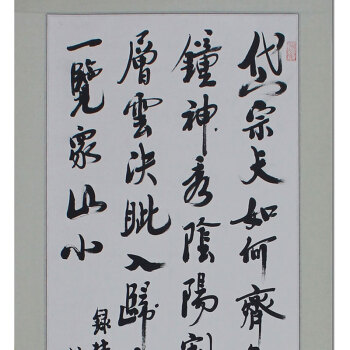 岱宗夫如何齊
鐘神秀陰陽割
層雲決眦入歸
一覽眾山小
録